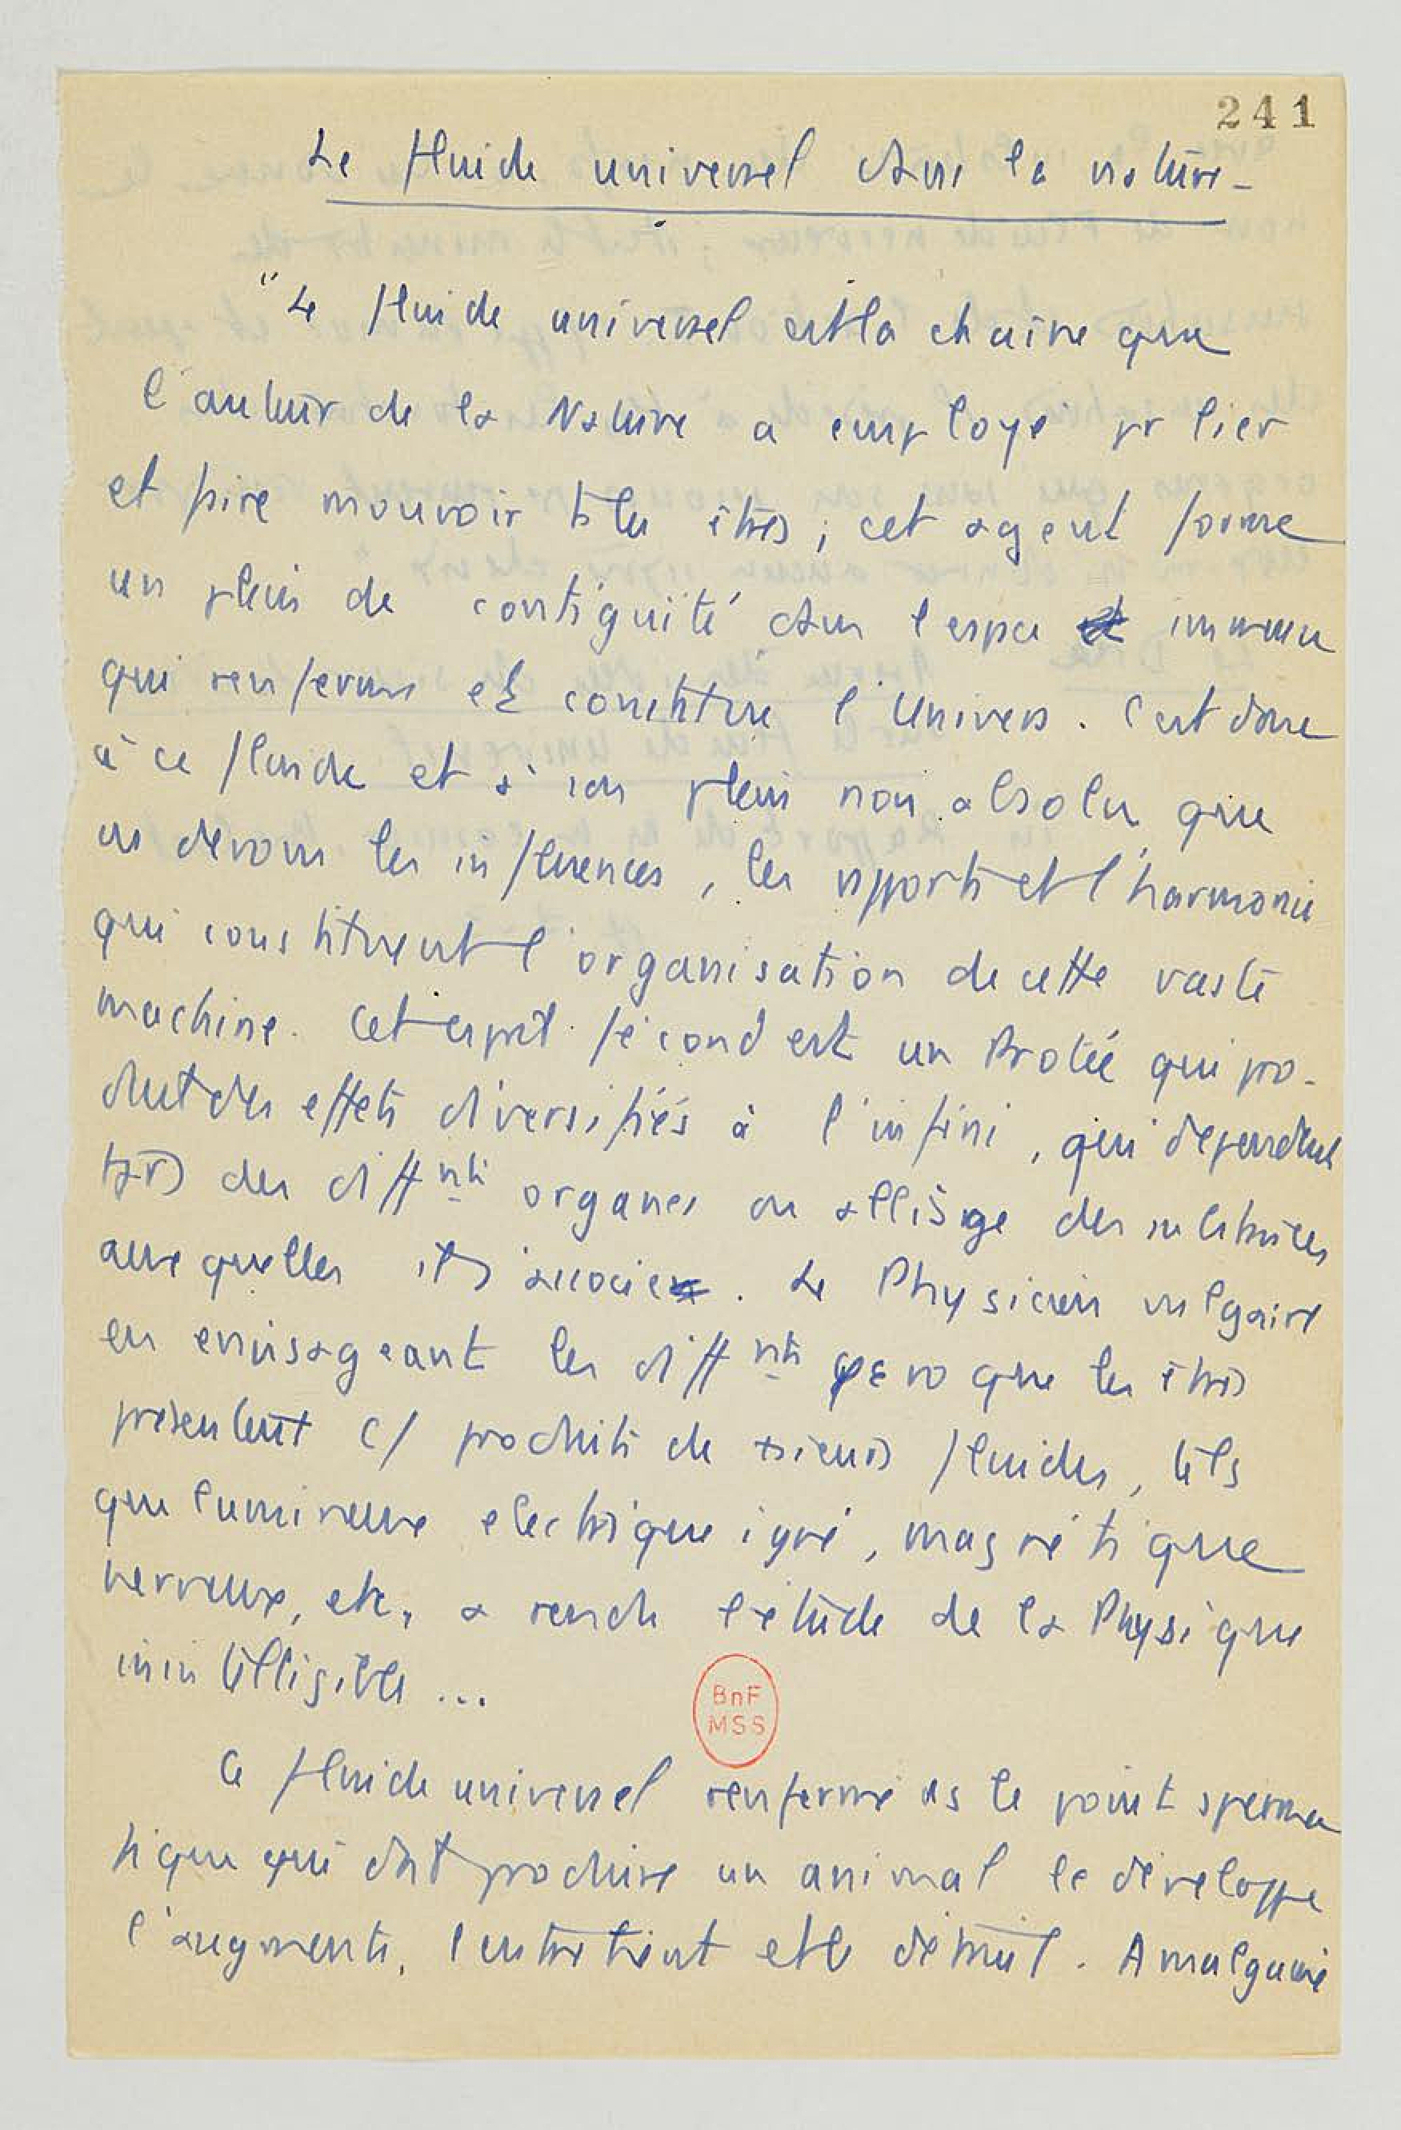 241
Le fluide universel dans la nature -
"Le fluide universel est la chaine que
l'auteur de la Nature a employé pr lier
et faire mouvoir ts les êtres ; cet agent forme
un plein de contiguïté dans l'espace immense
qui renferme et constitue l'Univers. C'est donc
à ce fluide et à son plein non absolu que
ns devons les influences, les rapports et l'harmonie
qui constituent l'organisation de cette vaste
machine. Cet esprit fécond est un Protée qui pro-
duit des effets diversifiés à l'infini, qui dependent
tjrs des diffnts organes ou alliage des substances
auxquelles il s'associe. Le Physicien vulgaire
en envisageant les diffnts que les êtres
présentent c/ produits de fluides, tels
que lumineux electrique igné, magnétique
nerveux, etc, a rendu l'étude de la Physique
inintelligible ...
Ce fluide universel renfermé ds le point sperma
tique qui doit produire un animal le développe
l'augmente, l'entretient et le détruit. Amalgamé
BnF
MSS